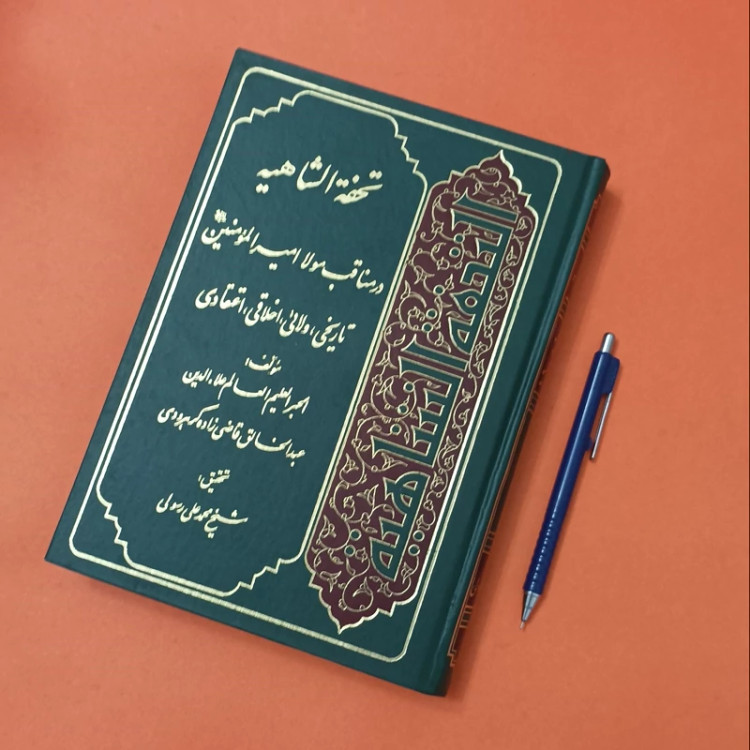 تحفة الشاهیه
در مناقب مولا امیرالمؤمنین
تاریخی، ولائی، اخلاقی، اعتقادی
مؤلف:
الحبر العظیم العالم علاءالدین
عبدالخالق قاضی‌زاده کرهرودی
تحقیق:
شیخ محمد علی رسولی
التحفة الشاهیة